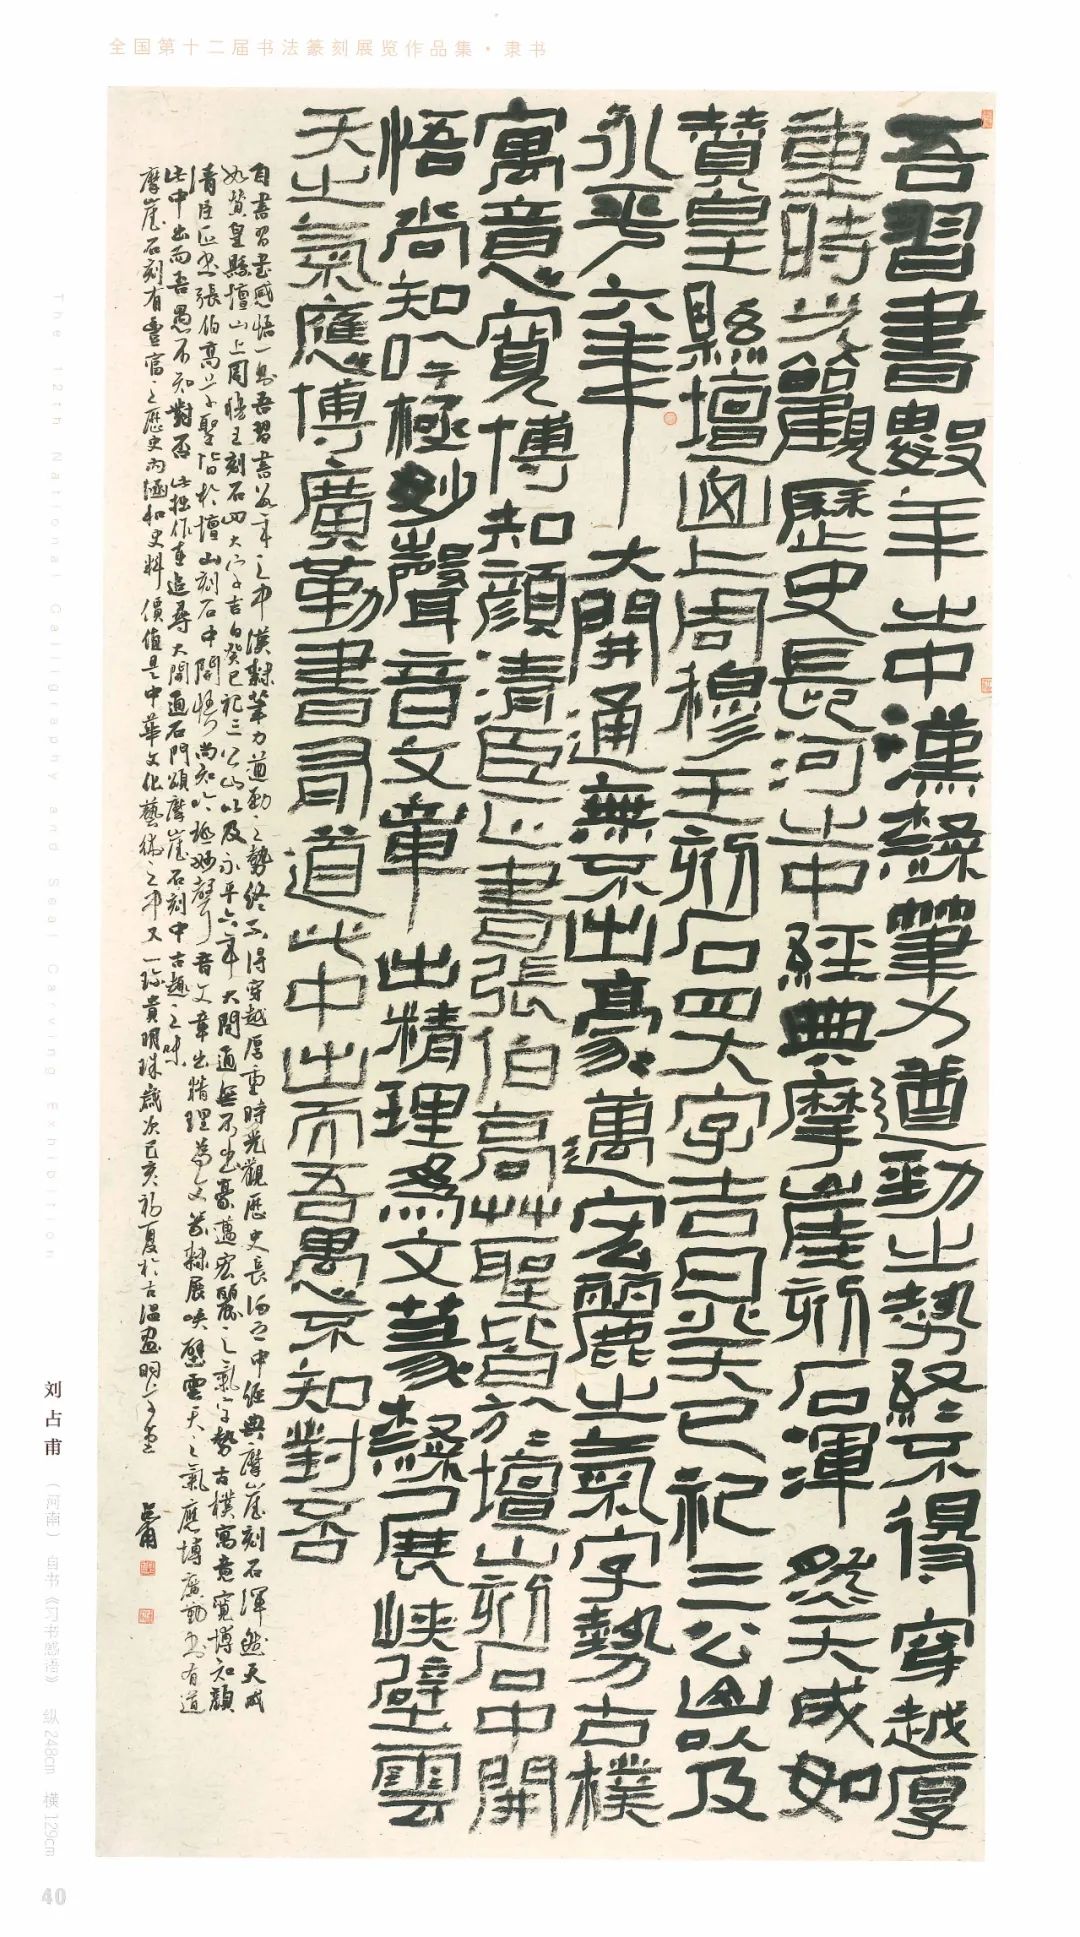 全国第十二届书法篆刻展览作品集·隶书
吾習書數年之中漢隸筆力遒勁之勢終不得穿越厚
重時光觀歷史長河之中經典摩崖刻石渾然天成如
贊皇縣壇山上周穆王刻石四大字吉日癸巳祀三公山以及
永平六年大開通無不出豪邁宏麗之氣字勢古樸
寓意寬博知顏清臣正書張伯高草聖皆於壇山刻石中開
悟尚知吟極妙聲音文章出精理為文篆隸展峡壁雲
天之氣應博廣勤書有道此中出而吾愚不知對否
自書習書感悟一則吾習書數年之中漢隸筆力遒勁之勢終不得穿越厚重時光觀歷史長河之中經典摩崖刻石渾然天成
如贊皇縣壇山上周穆王刻石四大字吉日癸巳祀三公山以及永平六年大開通無不出豪邁宏麗之氣字勢古樸寓意寬博知顏
清臣正書張伯高草聖皆於壇山刻石中開悟尚知吟極妙聲音文章出精理為文篆隸展峡壁雲天之氣應博廣勤書有道
此中出而吾愚不知對否此拙作在追尋大開通石門頌摩崖石刻中古趣之味
摩崖石刻有豐富之歷史內涵和史料價值是中華文化藝術之中又一珍貴明珠歲次己亥初夏於古溫
占甫
The 12th National Calligraphy and Seal Carving Exhibition
刘占甫（河南） 自书《习书感悟》 纵248cm 横129cm
40